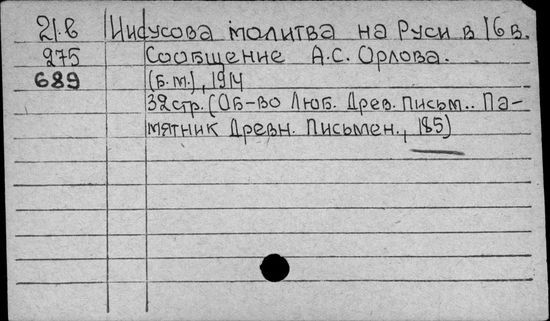 21.в Иисусова молитва на Руси в 16 в.
275 Сообщение А.С. Орлова.
689 (б.м.), 1914
32 стр. (Об-во Люб. Древ. Письм.. Па-
мятник Древн. Письмен., 185)